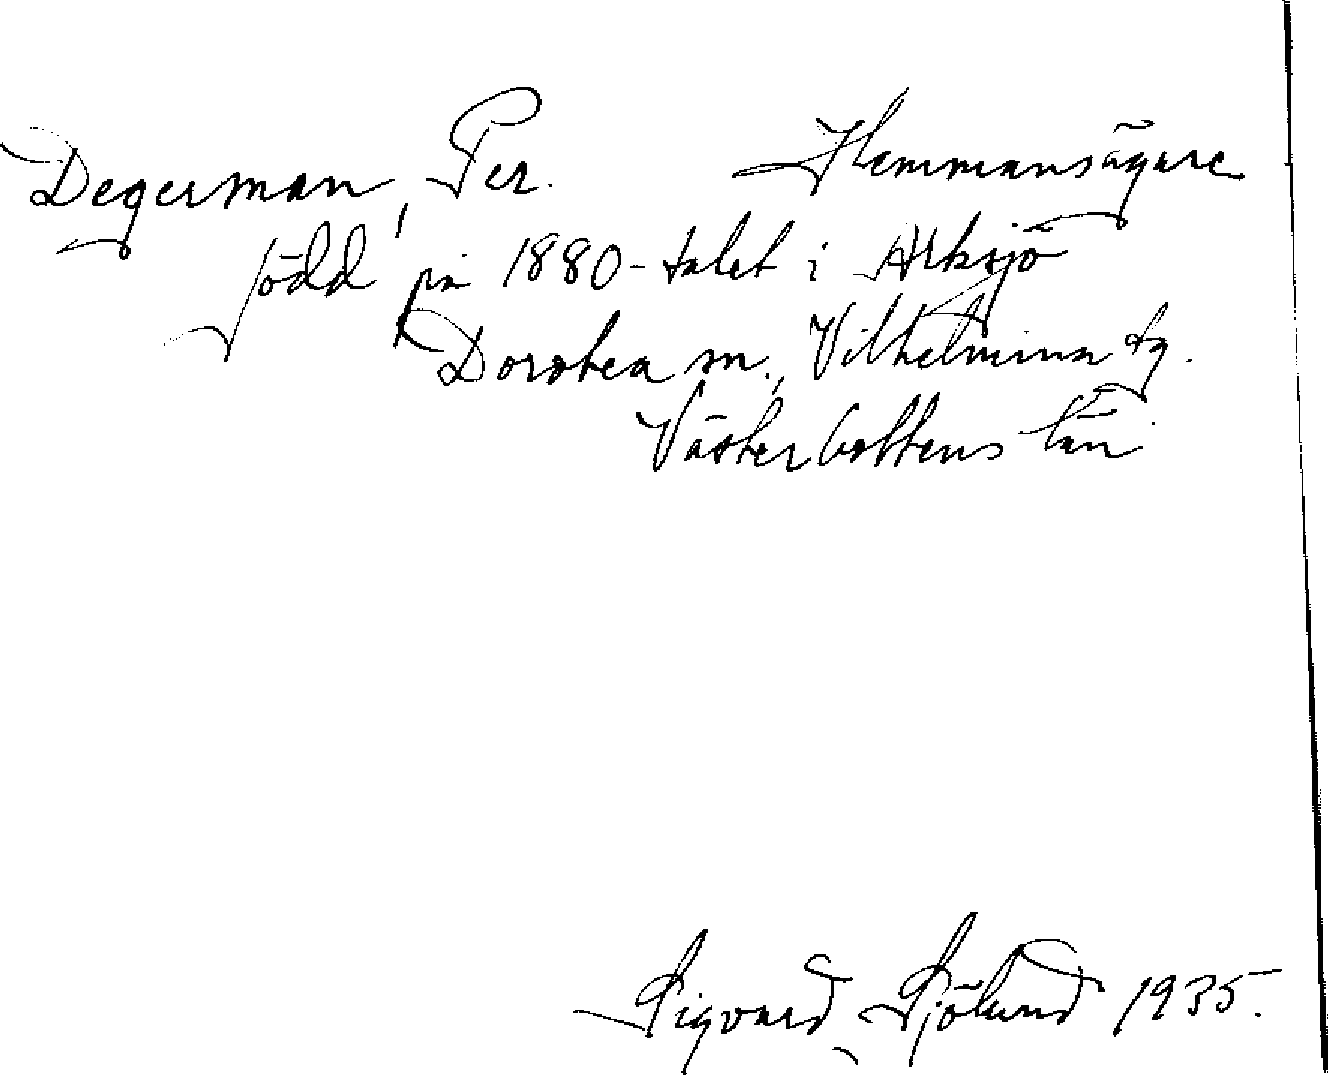 Degerman, Per. Hemmansägare
född på 1880-talet i Arksjö
Dorotea sn., Vilhelmina tg.
Västerbottens län
Sigvard Sjölund 1935.